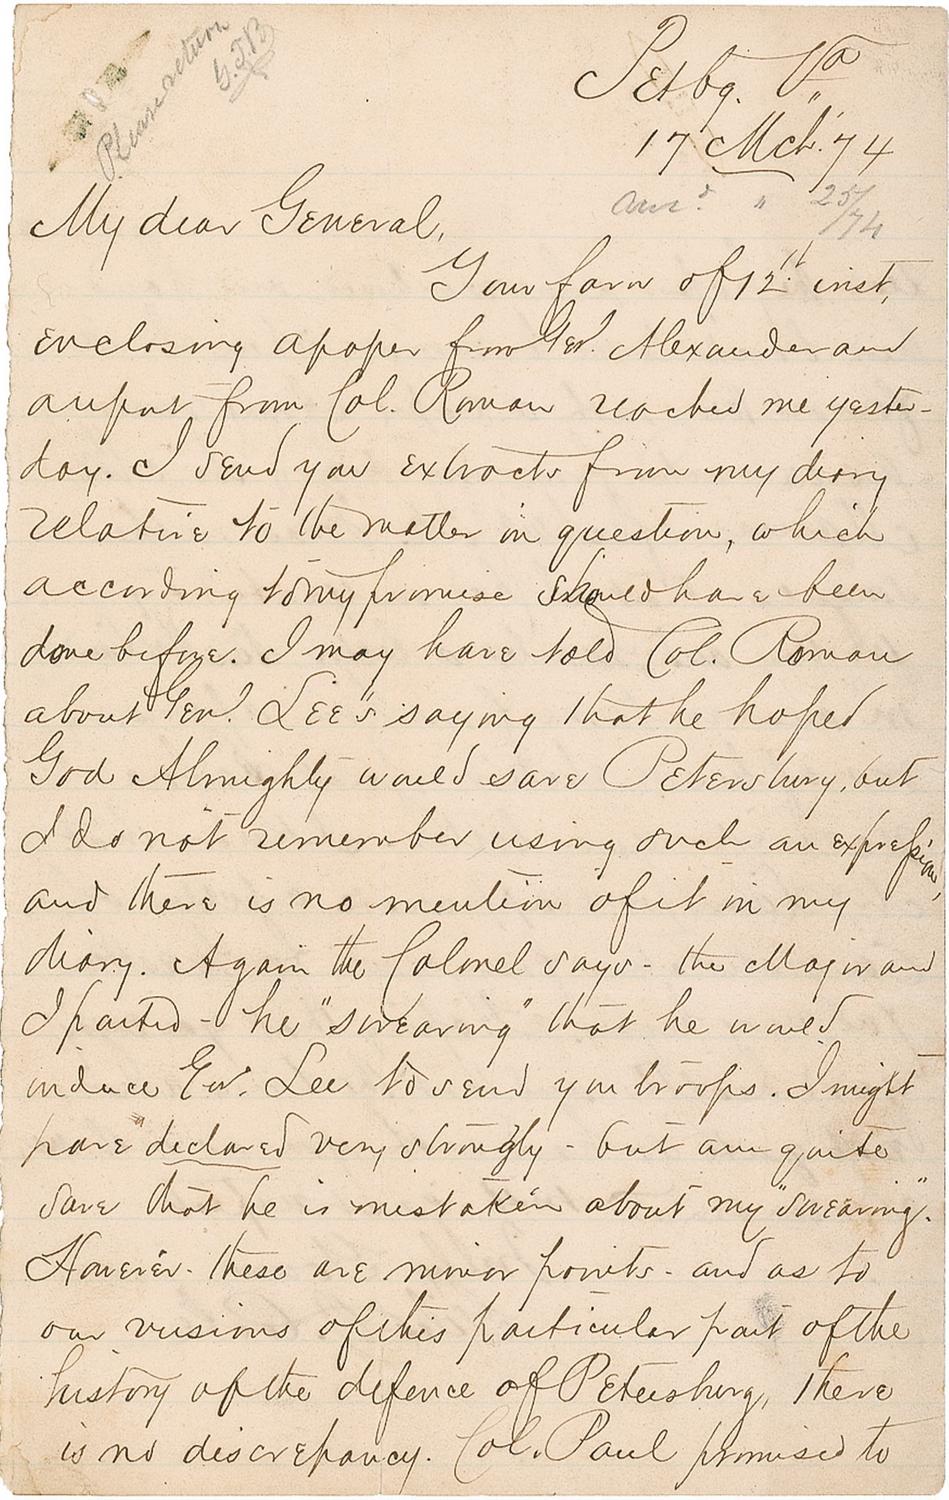 Please return
G.T.B
Petbg. Va
17 Mch. 74
Ansd " 25/74
My dear General,
Your favr of 12th inst,
enclosing a paper from Genl. Alexander and
a report from Col. Roman reached me yester-
day. I send you extracts from my diary
relative to the matter in question, which
according to my promise should have been
done before. I may have told Col. Roman
about Genl. Lee's saying that he hoped
God Almighty would save Petersburg, but
I do not remember using such an expression,
and there is no mention of it in my
diary. Again the Colonel says - the Major and
I parted - he "swearing" that he would
induce Genl. Lee to send you troops. I might
have "declared very strongly - but am quite
sure that he is mistaken about my "swearing".
However - these are minor points - and as to
our versions of this particular part of the
history of the defence of Petersburg, there
is no discrepancy. Col. Paul promised to